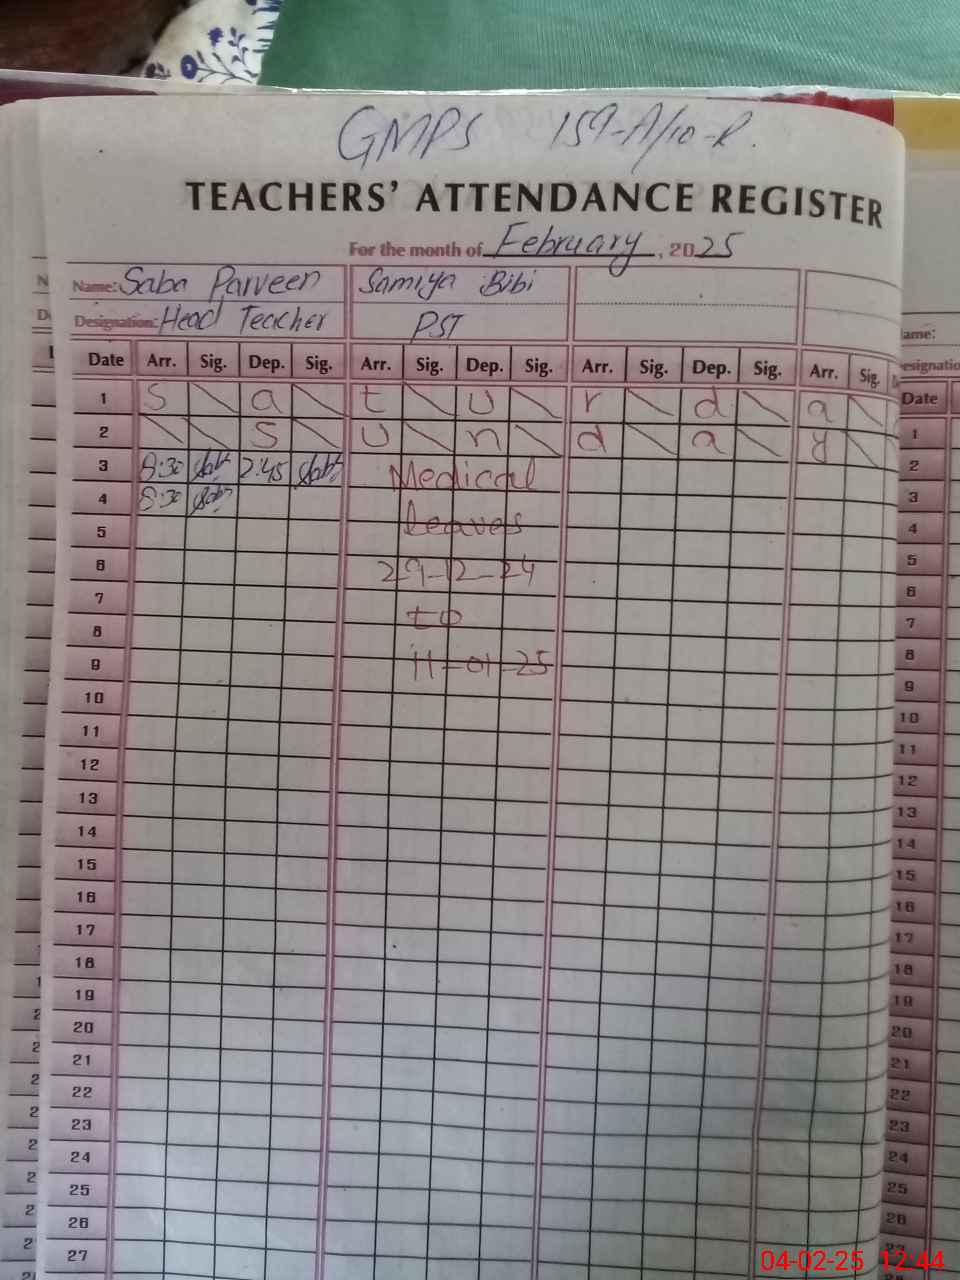 GMPS 159-A/10-R.
TEACHERS' ATTENDANCE REGISTER
For the month of February, 2025
Name: Saba Parveen Samiya Bibi
Designation: Head Teacher PST
Date Arr. Sig. Dep. Sig. Arr. Sig. Dep. Sig. Arr. Sig. Dep. Sig. Arr. Sig.
1 S a t u r d a
2 S u n d a y
3 8:30 Saba 2:45 Saba Medical
4 8:30 Saba
5 leaves
6 29-12-24
7
8 to
9 11-01-25
10
11
12
13
14
15
16
17
18
19
20
21
22
23
24
25
26
27
ame:
esignatio
Date
1
2
3
4
5
6
7
8
9
10
11
12
13
14
15
16
17
18
19
20
21
22
23
24
25
26
04-02-25 12:44